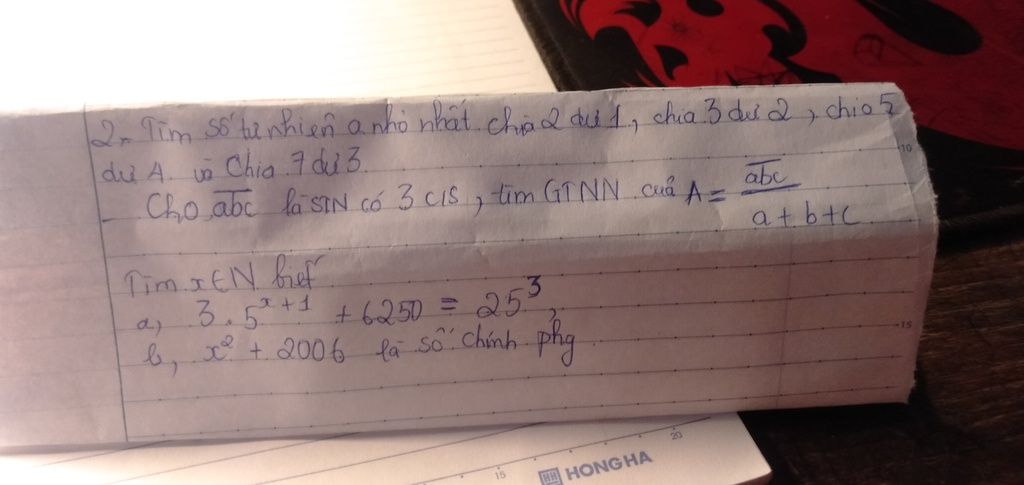 2. Tìm số tự nhiên a nhỏ nhất chia 2 dư 1, chia 3 dư 2, chia 5
dư 4. và Chia 7 dư 3.
- Cho abc là STN có 3 c/s, tìm GTNN của A = abc / a + b + c
Tìm x ∈ N biết
a, 3 . 5^(x+1) + 6250 = 25^3,
b, x² + 2006 là số chính phg
10
15
15
20
HH HONG HA